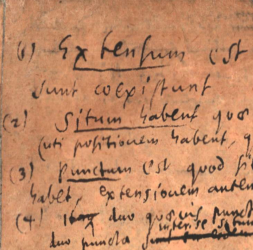 (1) Extensum est
sunt coexistunt
(2) Situm habent quos
(uti positionem habent, q
(3) Punctum est quod si
habet, extensionem autem
(4) duo quaevis punct
inter se situm
duo puncta